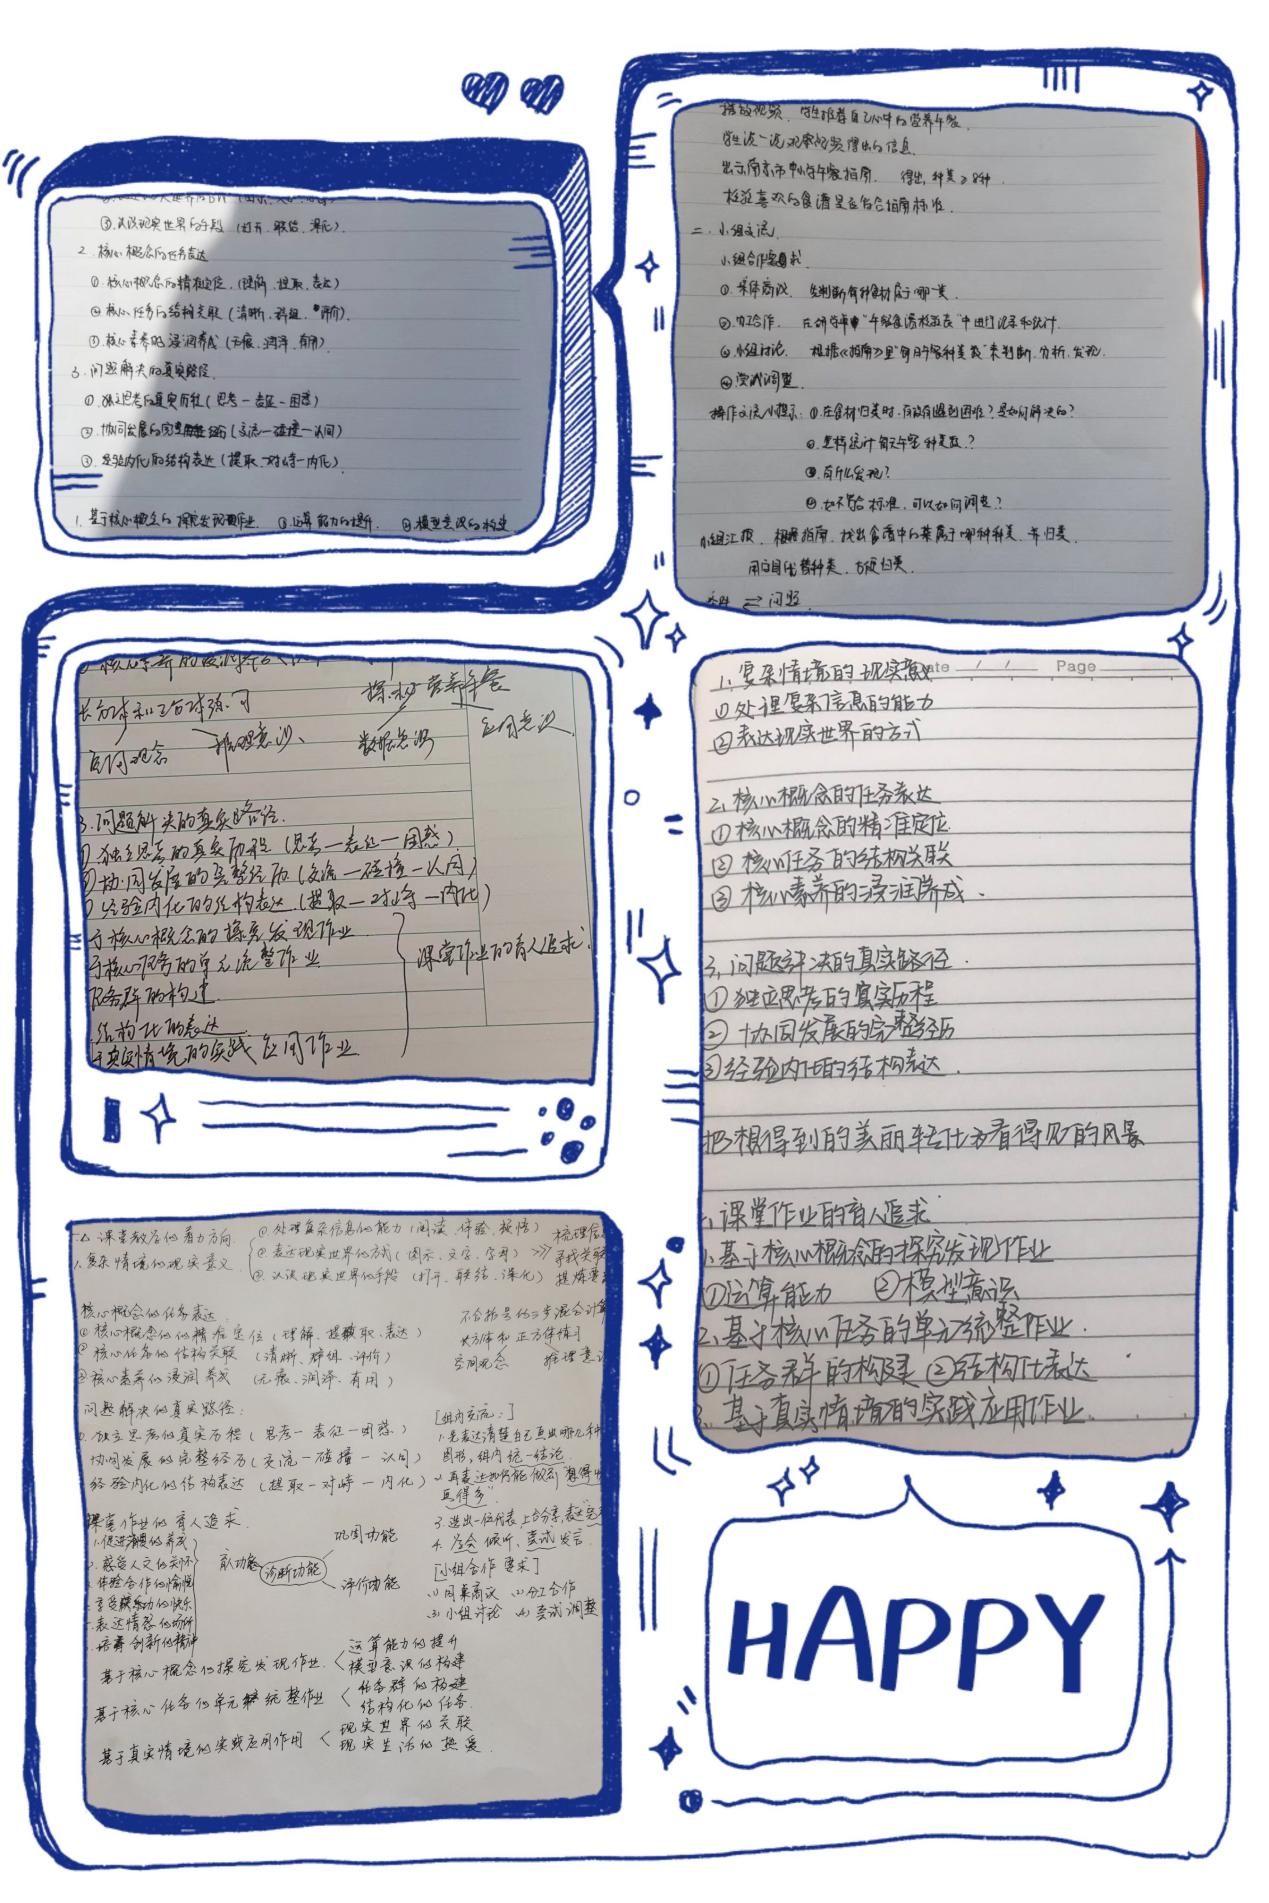 ③认识现实世界的手段（打开、联结、深化）.
2. 核心概念的任务表达
①核心概念的精准定位.（理解、提取、表达）
②核心任务的结构关联（清晰、群组、评价）.
③核心素养的浸润养成（无痕、润泽、有用）
3. 问题解决的真实路径.
①.独立思考的真实历程（思考一表征一困惑）
②.协同发展的完整经历（交流一碰撞一认同）
③.经验内化的结构表达（提取一对峙一内化）
1. 基于核心概念的探究发现作业. ①运算能力的提升. ②模型意识的构建
播放视频. 学生推荐自己心中的营养午餐.
学生说一说观察视频得出的信息.
出示南京市中小学午餐指南. 得出, 种类≥8种.
检验喜欢的食谱是否符合指南标准.
二. 小组交流
小组合作要求
①. 集体商议.
②. 分工合作. 在研学单中"午餐食谱检验表"中进行记录和统计.
③小组讨论. 根据《指南》里"每日午餐种类数"来判断、分析、发现.
④尝试调整.
操作交流小提示: ①.在食材归类时,有没有遇到困难?是如何解决的?
②.怎样统计每天午餐种类数?
③.有什么发现?
④.如不符合标准,可以如何调整?
小组汇报. 根据指南. 找出食谱中的菜属于哪种种类. 并归类.
用序号代替种类. 方便归类.
⇌ 问题
长方体和正方体练习
探秘营养午餐
空间观念 推理意识、 数据意识 应用意识
3.问题解决的真实路径.
独立思考的真实历程（思考一表征一困惑）
协同发展的完整经历（交流一碰撞一认同）
经验内化的结构表达（提取一对峙一内化）
于核心概念的探究发现作业
于核心任务的单元统整作业
任务群的构建
结构化的表达
于真实情境的实践应用作业
课堂作业的育人追求.
1. 复杂情境的现实意义
Date / / Page
①处理复杂信息的能力
②表达现实世界的方式
2. 核心概念的任务表达
①核心概念的精准定位
②核心任务的结构关联
③核心素养的浸润养成.
3. 问题解决的真实路径.
①独立思考的真实历程
②协同发展的完整经历
③经验内化的结构表达.
把想得到的美丽转化为看得见的风景
课堂作业的育人追求
1.基于核心概念的探究发现作业
①运算能力 ②模型意识
2.基于核心任务的单元统整作业.
①任务群的构建 ②结构化表达
基于真实情境的实践应用作业.
一. 课堂教学的着力方向
1. 复杂情境的现实意义
①处理复杂信息的能力（阅读、体验、梳悟）
②表达现实世界的方式（图示、文字、字母）>>>
③认识现实世界的手段（打开、联结、深化）
梳理信息
寻找关联
提炼要
核心概念的任务表达
①核心概念的精准定位（理解、提取、表达）
②核心任务的结构关联（清晰、群组、评价）
③核心素养的浸润养成（无痕、润泽、有用）
不含括号的三步混合计算
长方体和正方体练习
空间观念 推理意识
问题解决的真实路径:
独立思考的真实历程（思考一表征一困惑）
协同发展的完整经历（交流一碰撞一认同）
经验内化的结构表达（提取一对峙一内化）
[组内交流:]
1.先表达清楚自己画出哪几种
图形,组内统一结论.
2.再表达如何能做到"想得
画得多"
3.选出一位代表上台分享,表达
4.学会倾听、尝试发言.
[小组合作要求]
(1) 同桌商议 (2) 分工合作
(3) 小组讨论 (4) 尝试调整
课堂作业的育人追求.
1.促进习惯的养成
感受人文的关怀
体验合作的愉悦
享受成功的快乐
表达情感的场所
培养创新的精神
育人功能 诊断功能 巩固功能
评价功能
基于核心概念的探究发现作业. < 运算能力的提升
模型意识的构建
基于核心任务的单元统整作业 < 任务群的构建
结构化的任务.
基于真实情境的实践应用作用 < 现实世界的关联
现实生活的热爱.
HAPPY